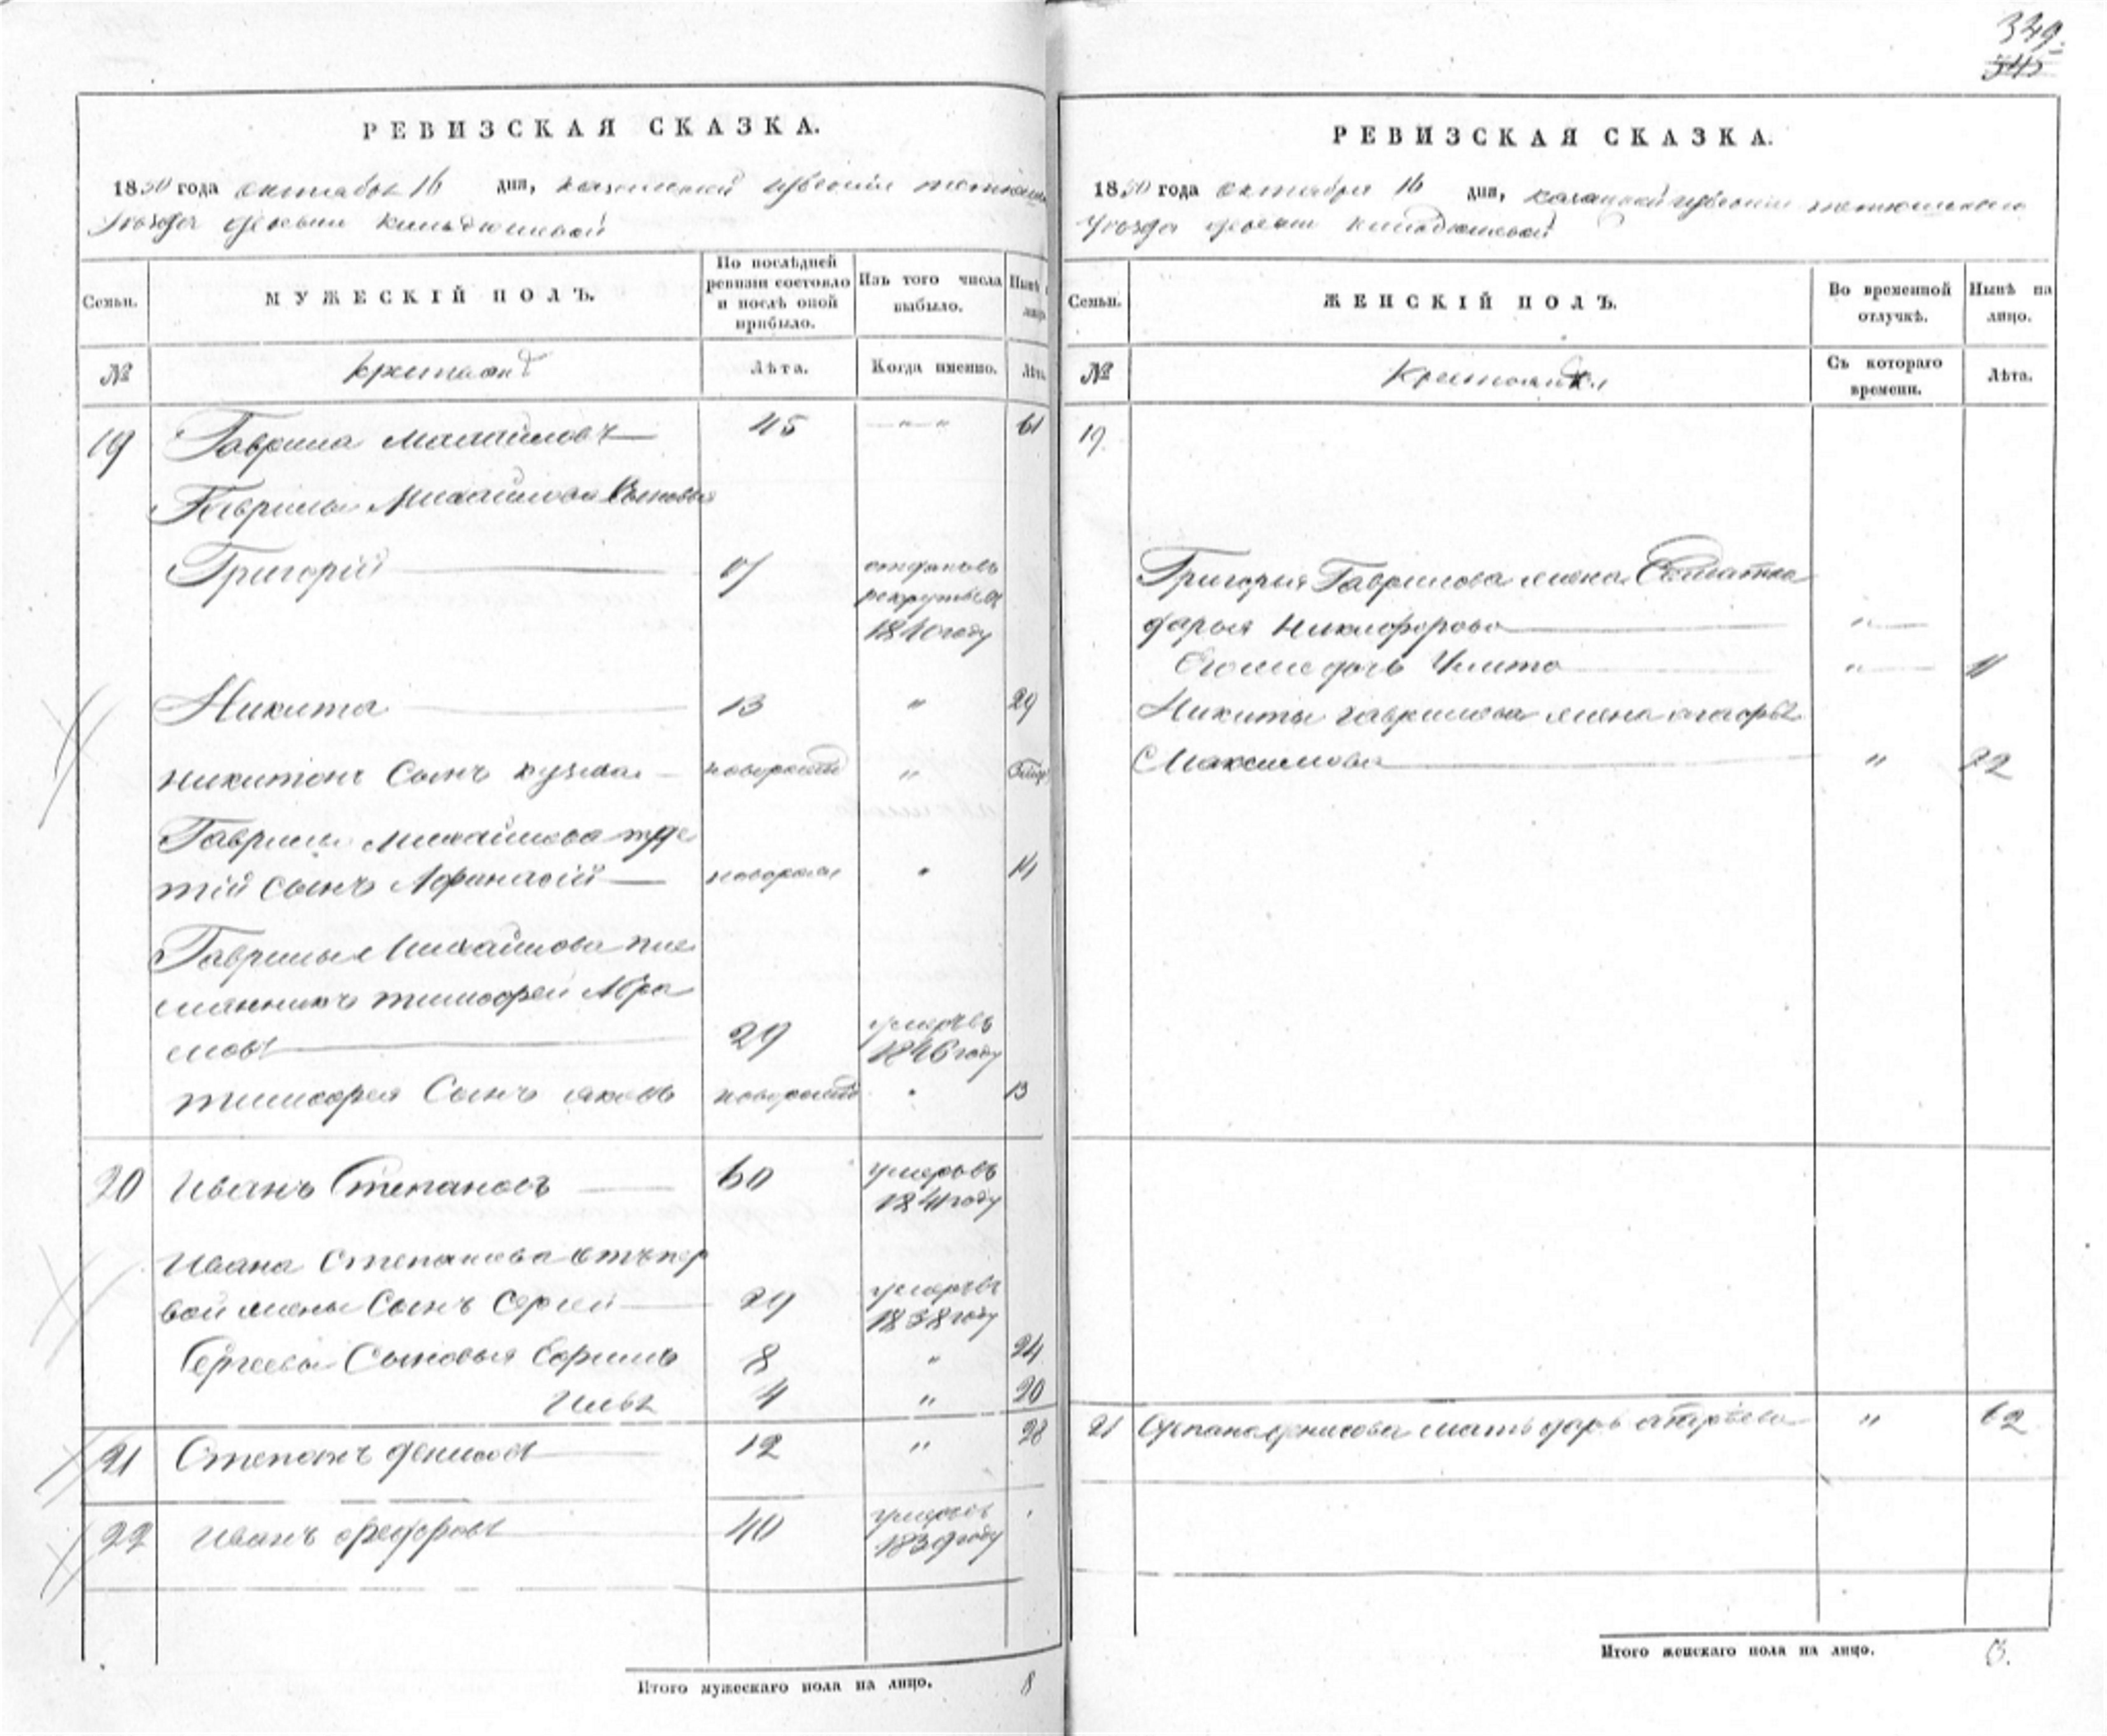 349.
345
РЕВИЗСКАЯ СКАЗКА.
1850 года октября 16 дня, казанской губернии тетюшск
Уѣзда деревни Кильдюшевой
Семьи.
МУЖЕСКІЙ ПОЛЪ.
По послѣдней ревизіи состояло и послѣ оной прибыло.
Изъ того числа выбыло.
Нынѣ
№
Лѣта.
Когда именно.
Лѣта
19 Гаврила Михайловъ 45 " " 61
Гаврилы Михайлова Сыновья
Григорій 17 отданъ въ
рекруты въ
1840 году
Никита 13 " 29
Никитинъ Сынъ Кузьма новорожд "
Гаврилы Михайлова тре
тій Сынъ Афанасій новорожд " 14
Гаврилы Михайлова пле
мянникъ Тимофей Абра
мовъ 29 умеръ въ
1846 году
Тимофея Сынъ Яковъ новорожд " 13
20 Иванъ Степановъ 60 умеръ въ
1841 году
Ивана Степанова отъ пер
вой жены Сынъ Сергей 29 умеръ въ
1838 году
Сергеевы Сыновья Ефимъ 8 " 24
Илья 4 " 20
21 Степанъ Денисовъ 12 " 28
22 Иванъ Федоровъ 40 умеръ въ
1839 году
Итого мужескаго пола на лицо. 8
РЕВИЗСКАЯ СКАЗКА.
1850 года октября 16 дня, казанской губернии тетюшскаго
Уѣзда деревни Кильдюшевой
Семьи.
ЖЕНСКІЙ ПОЛЪ.
Во временной отлучкѣ.
Нынѣ на лицо.
№
Съ котораго времени.
Лѣта.
19.
Григорья Гаврилова жена Солдатка
Дарья Никифорова "
Его же дочь "  11
Никиты Гаврилова жена
Максимова " 22
21 Степана Денисова мать Дарья Андреева " 62
Итого женскаго пола на лицо. 3.